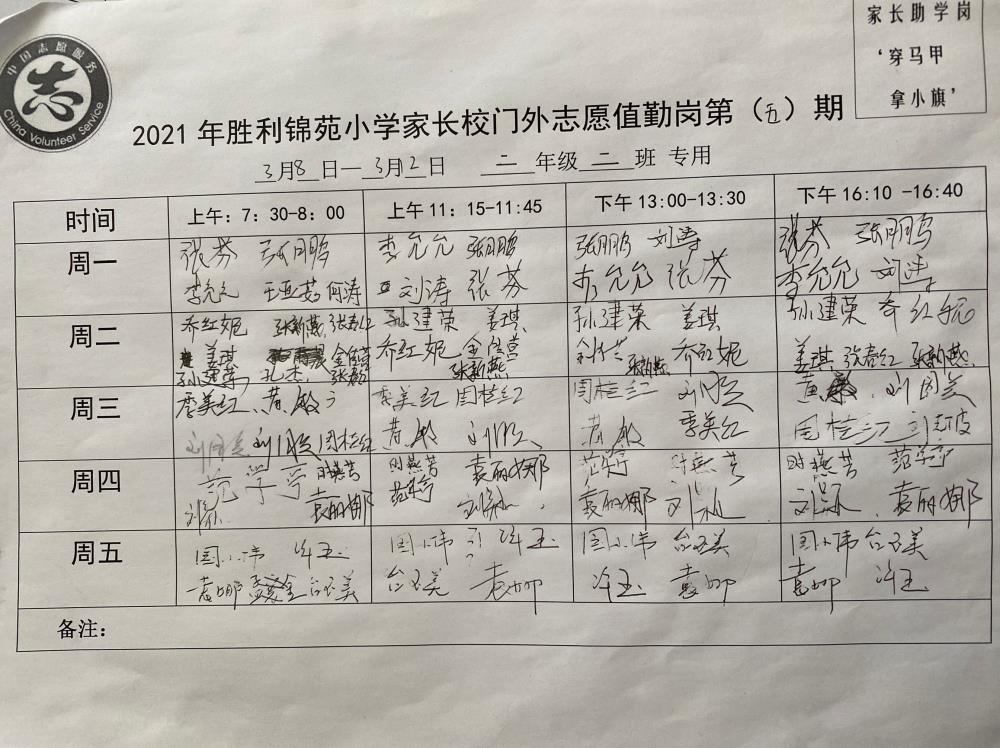 家长助学岗
‘穿马甲
拿小旗’
中国志愿服务
志
China Volunteer Service
2021年胜利锦苑小学家长校门外志愿值勤岗第（五）期
3月8日—3月12日 二年级二班 专用
时间 上午：7：30-8：00 上午11：15-11:45 下午13:00-13:30 下午16:10 -16:40
周一 张芬 张朋鹏 李允允 张朋鹏 张朋鹏 刘涛 张芬 张朋鹏
李允允 王亚茹 何涛 刘涛 张芬 李允允 张芬 李允允 刘涛
周二 乔红妮 张新燕 张春红 孙建荣 姜琪 孙建荣 姜琪 孙建荣 乔红妮
姜琪 乔红妮 张新燕 张新燕 乔红妮 姜琪 张春红 张新燕
孙建荣 孔杰
周三 季美红 黄敏 季美红 周桂红 周桂红 季美红 黄敏
周桂红 黄敏 黄敏 周桂红
周四 范学亭 时燕芳 时燕芳 袁丽娜 时燕芳 时燕芳
袁丽娜 袁丽娜 袁丽娜
周五 周小伟 许玉 周小伟 许玉 周小伟 台玉美 周小伟 台玉美
袁娜 台玉美 台玉美 袁娜 许玉 袁娜 袁娜 许玉
备注：